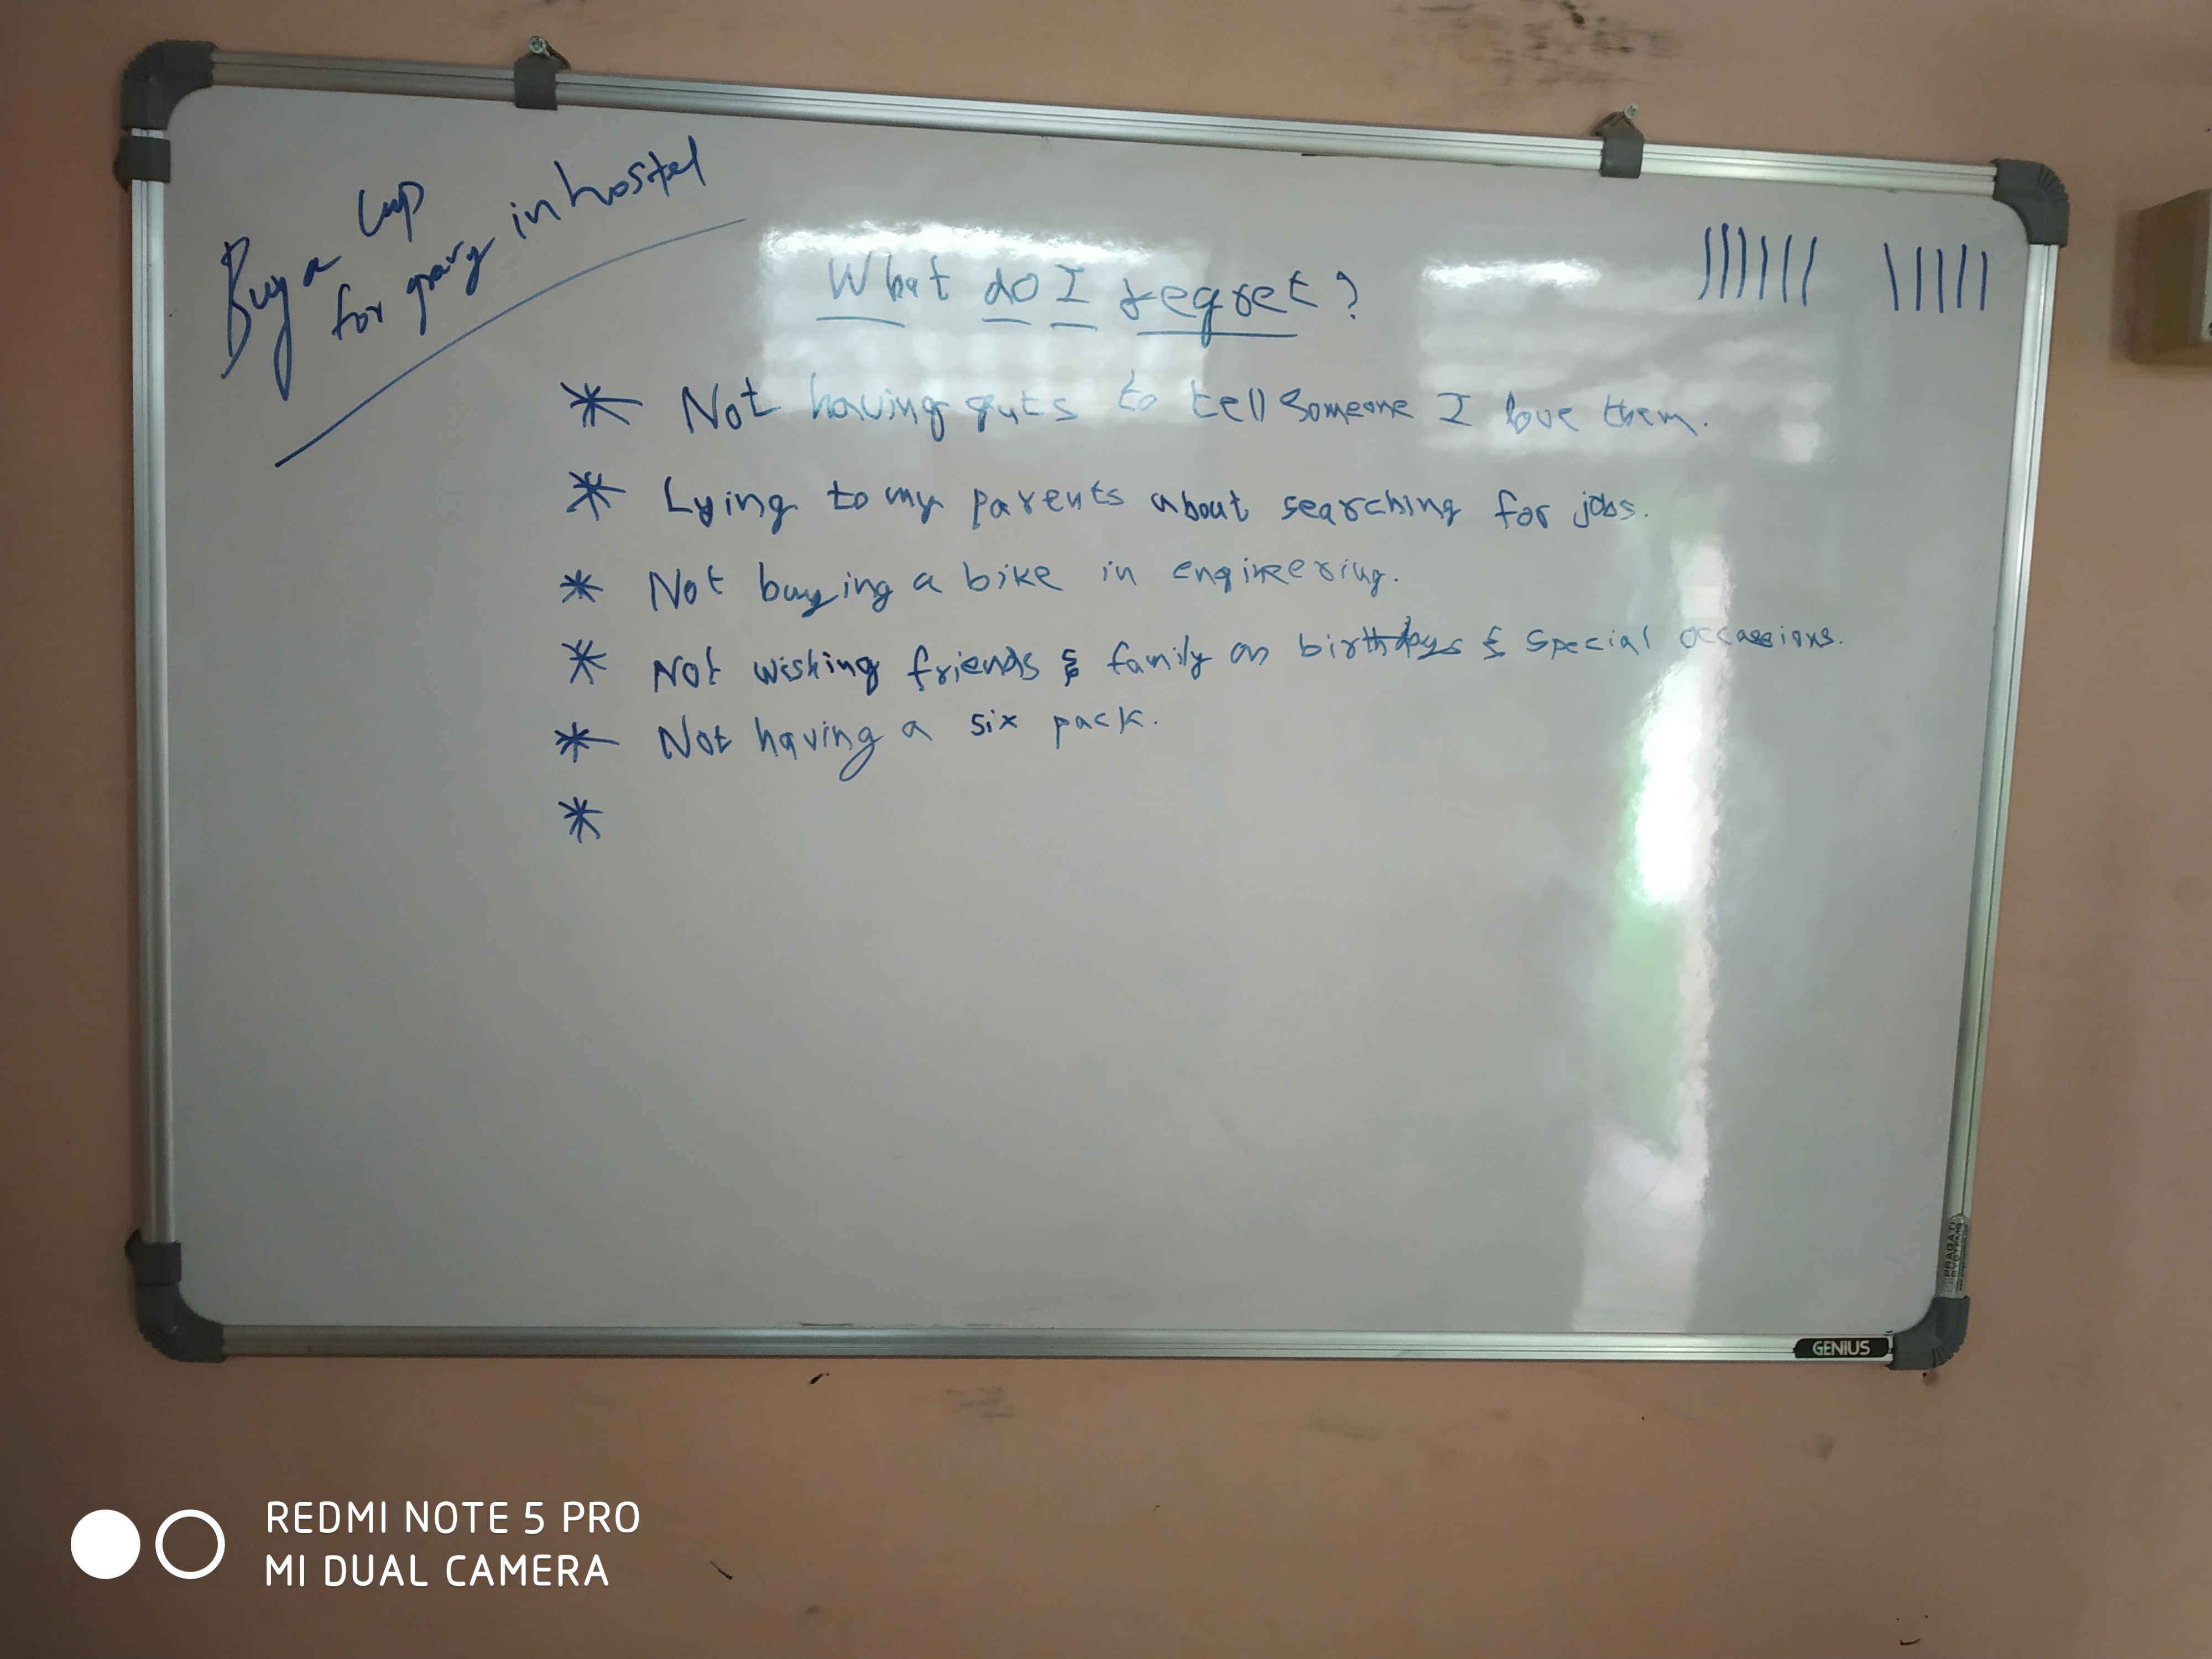 Buy a cup
for gravy in hostel
What do I regret?
* Not having guts to tell someone I love them.
* Lying to my parents about searching for jobs.
* Not buying a bike in engineering.
* Not wishing friends & family on birthdays & special occassions.
* Not having a six pack.
*
PRAGATI
SYSTEMS
GENIUS
REDMI NOTE 5 PRO
MI DUAL CAMERA